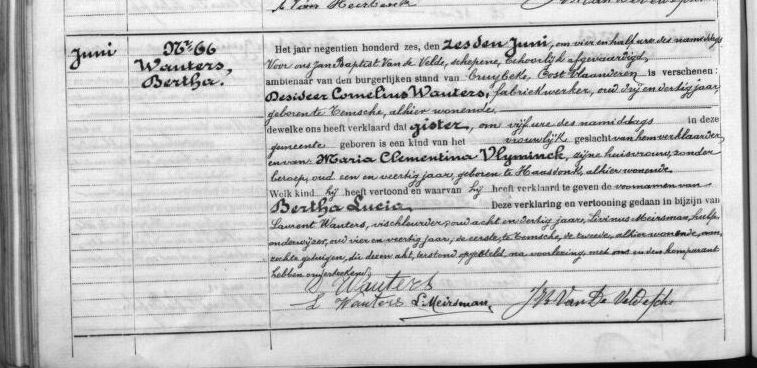 Juni
Nr. 66
Wauters,
Bertha.
Het jaar negentien honderd zes, den zesden Juni, om vier en half ure des namiddags
Voor ons Jan Baptist Van de Velde, schepene, behoorlijk afgevaardigd,
ambtenaar van den burgerlijken stand van Cruybeke, Oost Vlaanderen is verschenen:
Desideer Cornelius Wauters, fabriekwerker, oud drij en dertig jaar,
geboren te Temsche, alhier wonende
dewelke ons heeft verklaard dat gister, om vijf ure des namiddags in deze
gemeente geboren is een kind van het vrouwlijk geslacht van hem verklaarder,
en van Maria Clementina Vlyminck, zijne huisvrouw, zonder
beroep, oud een en veertig jaar, geboren te Haasdonk, alhier wonende.
Welk kind hij heeft vertoond en waarvan hij heeft verklaard te geven de voornamen van
Bertha Lucia. Deze verklaring en vertooning gedaan in bijzijn van
Laurent Wauters, vischleurder, oud acht en dertig jaar, Meirsman, hulp-
onderwijzer, oud vier en veertig jaar, de eerste, te Temsche, de tweede, alhier wonende, aan-
zochte getuigen, die dezen akt, terstond opgesteld, na voorlezing met ons en den komparant
hebben onderteekend,
D Wauters
L Wauters L. Meirsman, JB Van De Velde sch